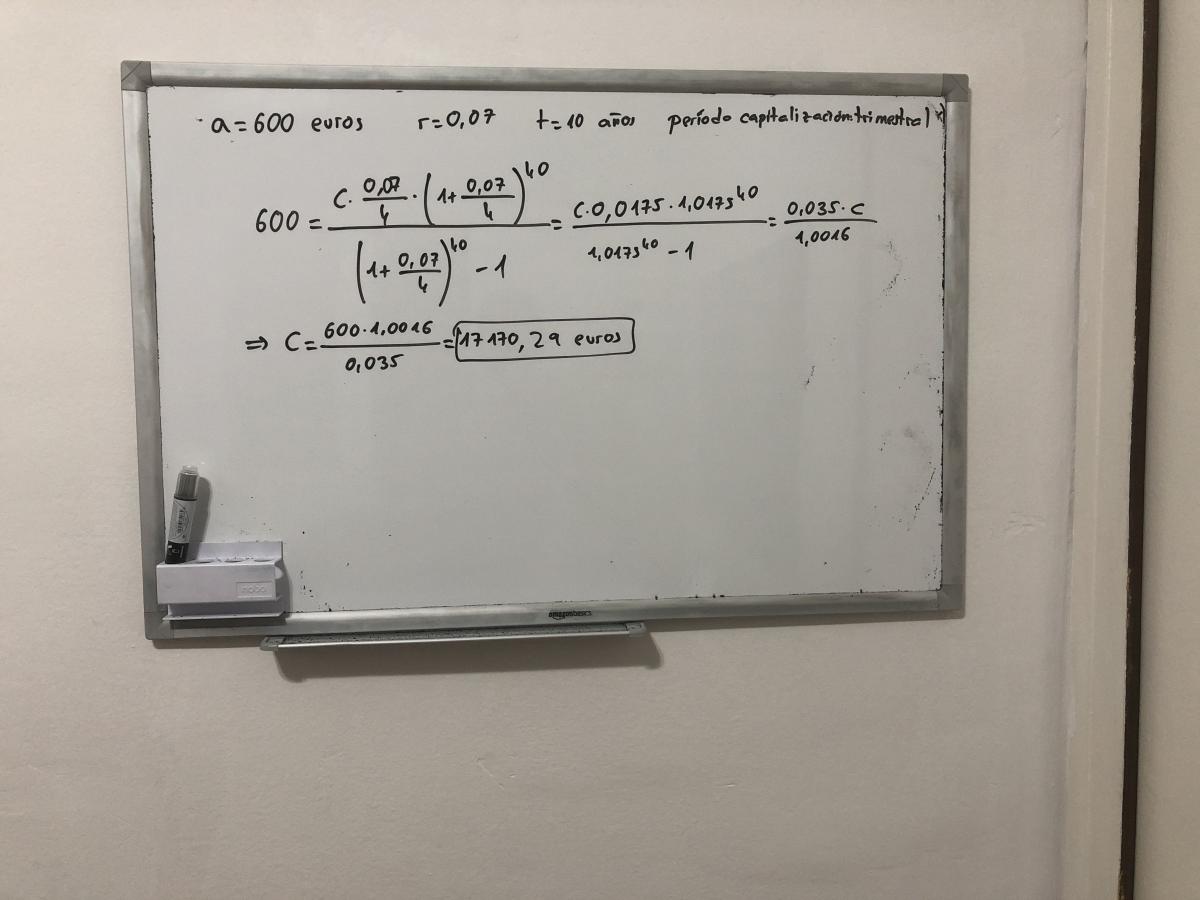 a = 600 euros r = 0,07 t = 10 años período capitalización: trimestral
600 = (C · 0,07/4 · (1 + 0,07/4)^40) / ((1 + 0,07/4)^40 - 1) = (C · 0,0175 · 1,0175^40) / (1,0175^40 - 1) = (0,035 · C) / 1,0016
⇒ C = (600 · 1,0016) / 0,035 = 17170,29 euros
nobo
amazonbasics